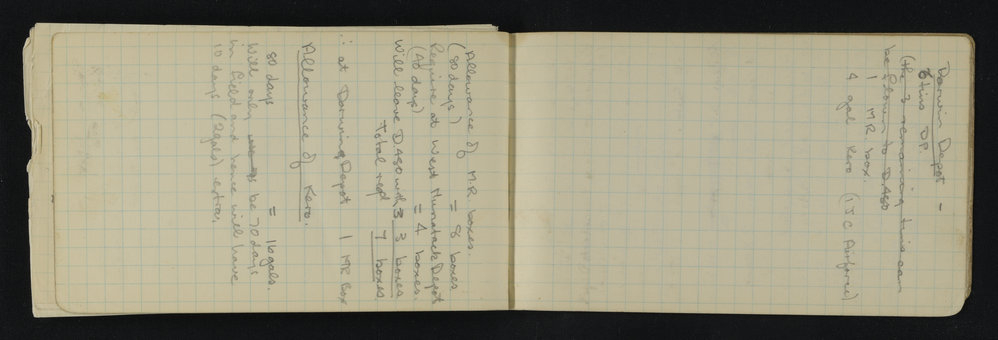 Darwin Depot -
6 tins D.P.
(the 3 remaining tins can
be flown to D.480
1 M.R. box.
4 gal Kero (1 J C Airforce)
Allowance of M.R. boxes.
(80 days) = 8 boxes
Require at West Nunatack Depot
(40 days) = 4 boxes.
Will leave D.480 with 3 3 boxes
Total reqd 7 boxes
∴ at Darwin Depot 1 MR Box
Allowance of Kero.
80 days = 16 gals.
Will only be 70 days
in field and hence will have
10 days (2 gals) extra.